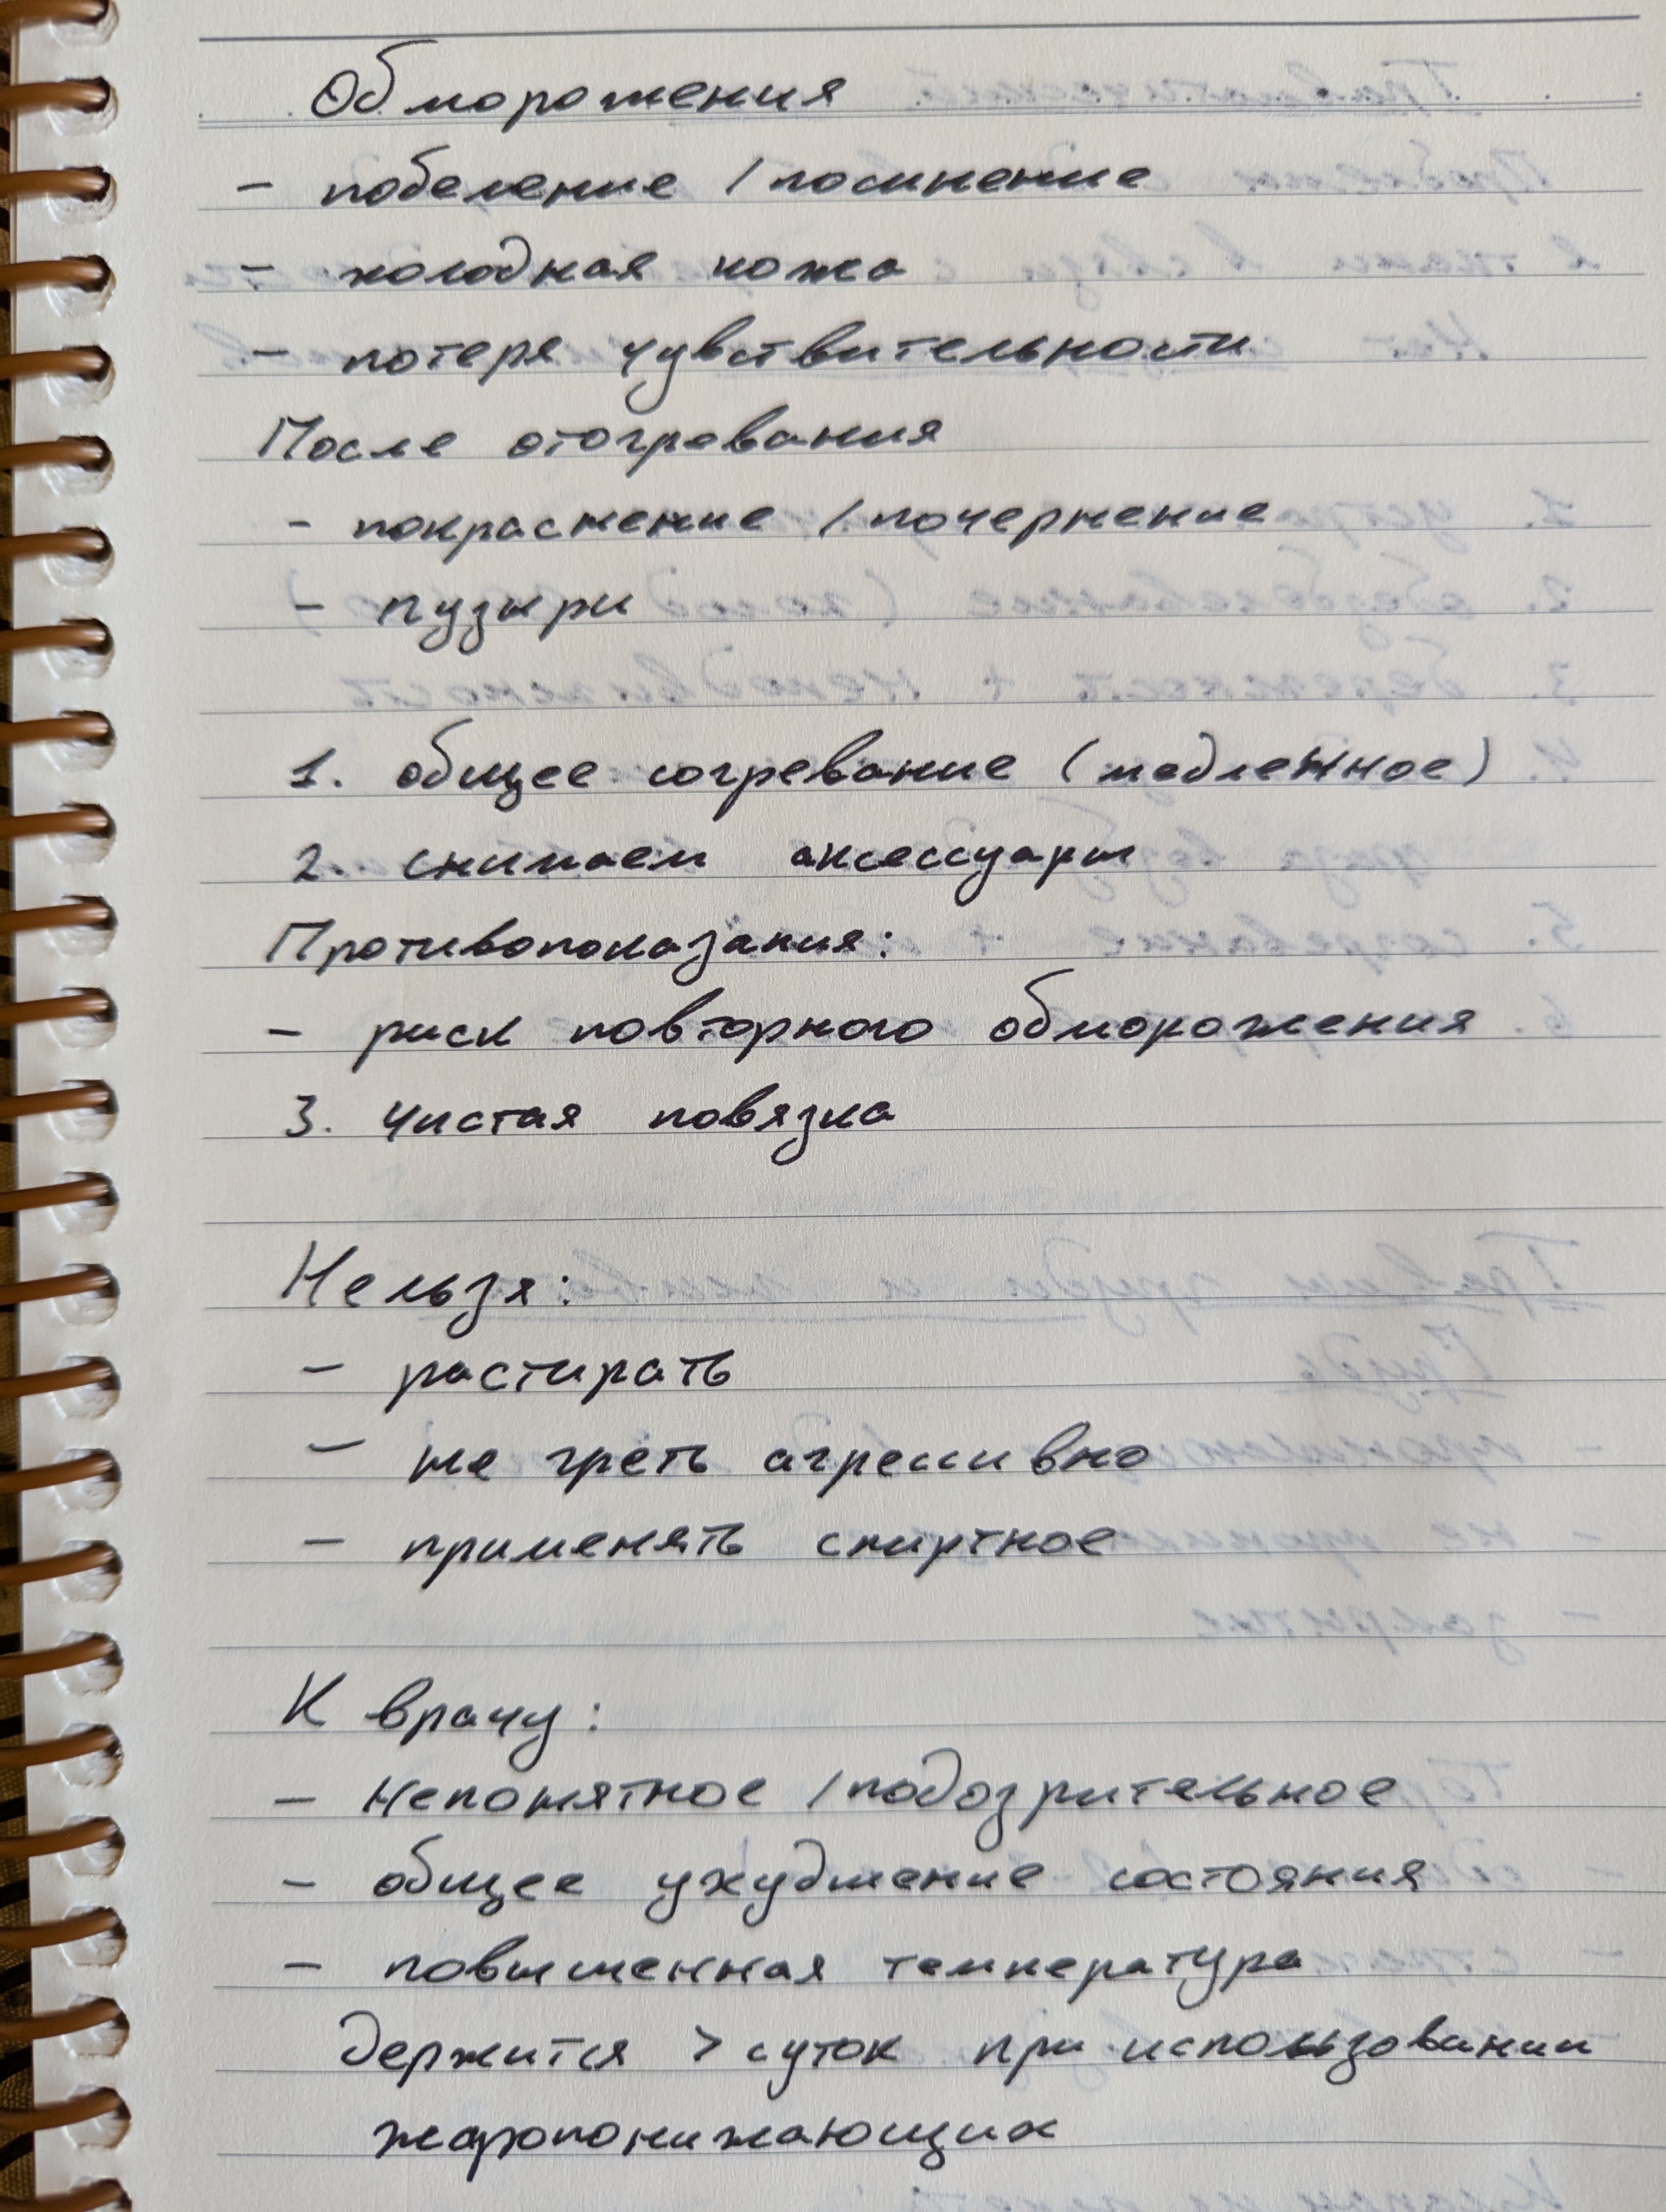 Обморожения
- побеление / посинение
- холодная кожа
- потеря чувствительности
После отогревания
- покраснение / почернение
- пузыри
1. общее согревание (медленное)
2. снимаем аксессуары
Противопоказания:
- риск повторного обморожения
3. Чистая повязка
Нельзя:
- растирать
- не греть агрессивно
- применять спиртное
К врачу:
- Непонятное / подозрительное
- общее ухудшение состояния
- повышенная температура
держится > суток при использовании
жаропонижающих